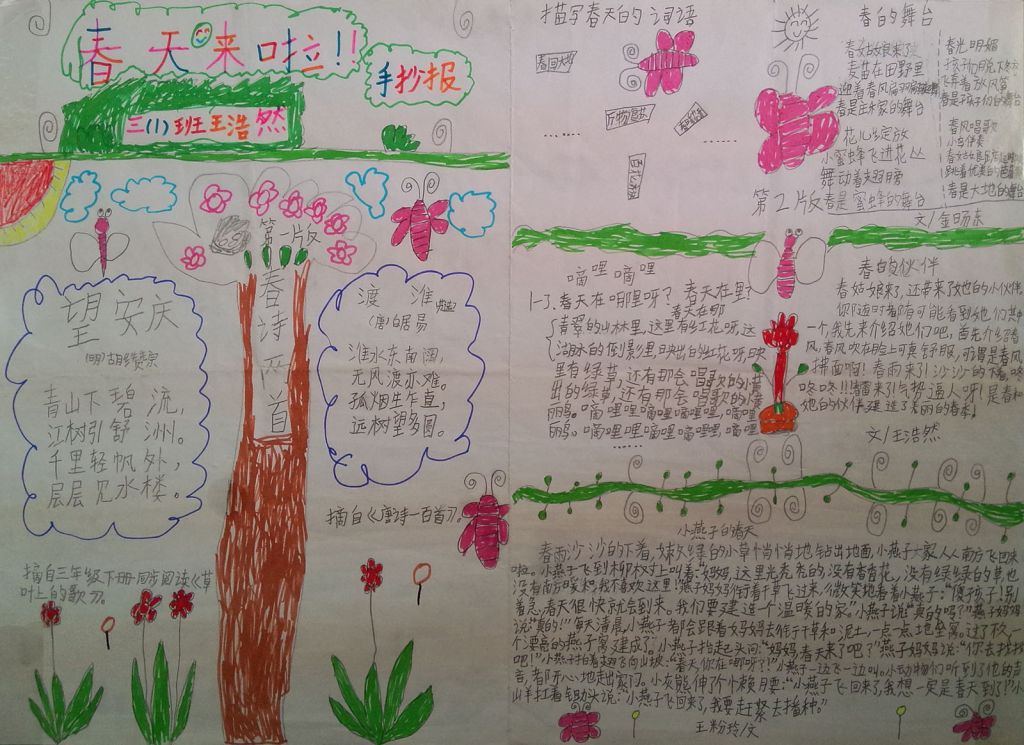 春天来啦!!
手抄报
三(1)班王浩然
第一片反
春诗两首
望安庆
(明)胡缵宗
青山下碧流,
江树引舒洲。
千里轻帆外,
层层见水楼。
摘自三年级下册同步阅读《草
叶上的歌》。
渡淮
(唐)白居易
淮水东南阔,
无风渡亦难。
孤烟生乍直,
远树望多圆。
摘自《唐诗一百首》。
描写春天的词语
春回大地
万物复苏
百花
……
……
第2片版
春的舞台
春姑娘来了
麦苗在田野里
迎着春风
春是庄家的舞台
花儿绽放
小蜜蜂飞进花丛
舞动着翅膀
春是蜜蜂的舞台
春光明媚
孩子们
放风筝
春是孩子们的舞台
春风唱歌
小鸟伴奏
跳着优美的
春是大地的舞台
文/金旸东
嘀哩嘀哩
春天在哪里呀?春天在
青翠的山林里,这里有红花呀,这
湖水的倒影里,映出的红花呀,映
里有绿草,还有那会唱歌的小黄
出的绿草,还有那会唱歌的小黄
鹂。嘀哩哩嘀哩嘀哩哩,嘀哩哩
……
春的伙伴
春姑娘来了,还带来了她的小伙伴。
你随时都有可能看到她们其中
一个,我先来介绍她们吧,首先介绍春
风,春风吹在脸上可真舒服,可谓是春风
拂面啊!春雨来了!沙沙的下着。咚
咚咚!!!春雷来了!气势逼人呀!是春和
她的伙伴建造了美丽的春季!
文/王浩然
小燕子的春天
春雨沙沙的下着,嫩绿的小草悄悄地钻出地面,小燕子一家人从南方飞回来
啦。小燕子飞到柳树上叫着:“妈妈,这里光秃秃的,没有香香花,没有绿绿的草,也
没有南方暖和,我不喜欢这里!”燕子妈妈衔着干草飞过来,微笑地看着小燕子:“傻孩子!别
着急,春天很快就会到来。我们要建造一个温暖的家。”小燕子说:“真的吗?”燕子妈妈
说:“真的!”每天清晨,小燕子都会跟着妈妈去衔干草和泥土,一点一点地垒窝。过了
个漂亮的燕子窝建成了。小燕子抬起头问:“妈妈,春天来了吧?”燕子妈妈说:“你去找找
吧!”小燕子拍着翅飞向山坡:“春天,你在哪呀?”小燕子一边飞一边叫。小动物们听到了他的声
音,都开心地走出家门。小灰熊伸了个懒腰:“小燕子飞回来了,我想一定是春天到了!”小
山羊扛着锄头说:“小燕子飞回来了,我要赶紧去播种。”
王粉玲/文